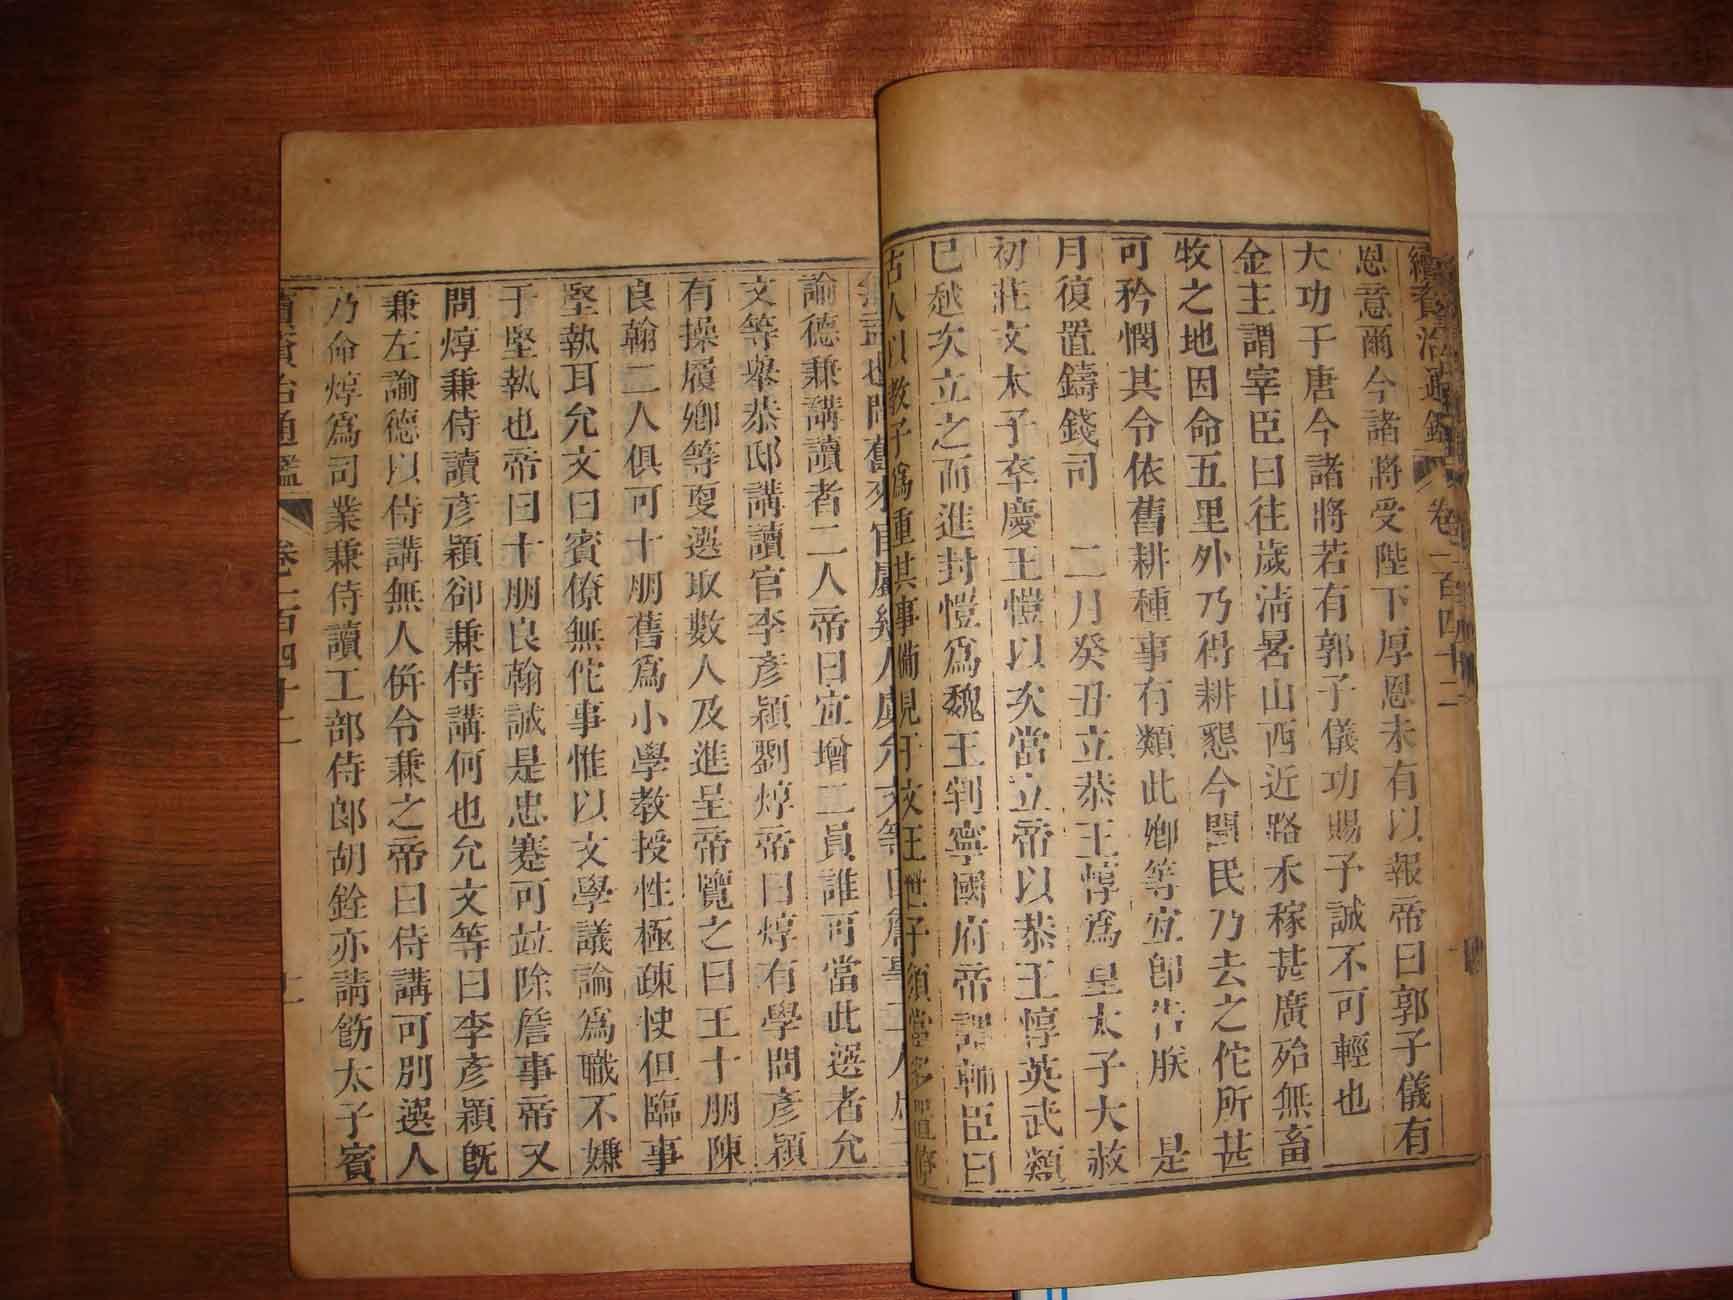 續資治通鑑 卷一百四十二
恩意爾今諸將受陛下厚恩未有以報帝曰郭子儀有
大功于唐今諸將若有郭子儀功賜予誠不可輕也
金主謂宰臣曰往歲清暑山西近路禾稼甚廣殆無畜
牧之地因命五里外乃得耕懇今聞民乃去之佗所甚
可矜憫其令依舊耕種事有類此卿等宜卽告朕 是
月復置鑄錢司 二月癸丑立恭王惇爲皇太子大赦
初莊文太子卒慶王愷以次當立帝以恭王惇英武類
己越次立之而進封愷爲魏王判寧國府帝謂輔臣曰
古人以教子爲重其事備見于文王世子須當多置僚
諭德兼講讀者二人帝曰宜增二員誰可當此選者允
文等舉恭邸講讀官李彥穎劉焞帝曰焞有學問彥穎
有操履卿等更選取數人及進呈帝覽之曰王十朋陳
良翰二人俱可十朋舊爲小學教授性極疎快但臨事
堅執耳允文曰賓僚無佗事惟以文學議論爲職不嫌
于堅執也帝曰十朋良翰誠是忠蹇可竝除詹事帝又
問焞兼侍讀彥穎卻兼侍講何也允文等曰李彥穎旣
兼左諭德以侍講無人併令兼之帝曰侍講可別選人
乃命焞爲司業兼侍讀工部侍郞胡銓亦請飭太子賓
續資治通鑑 卷一百四十二